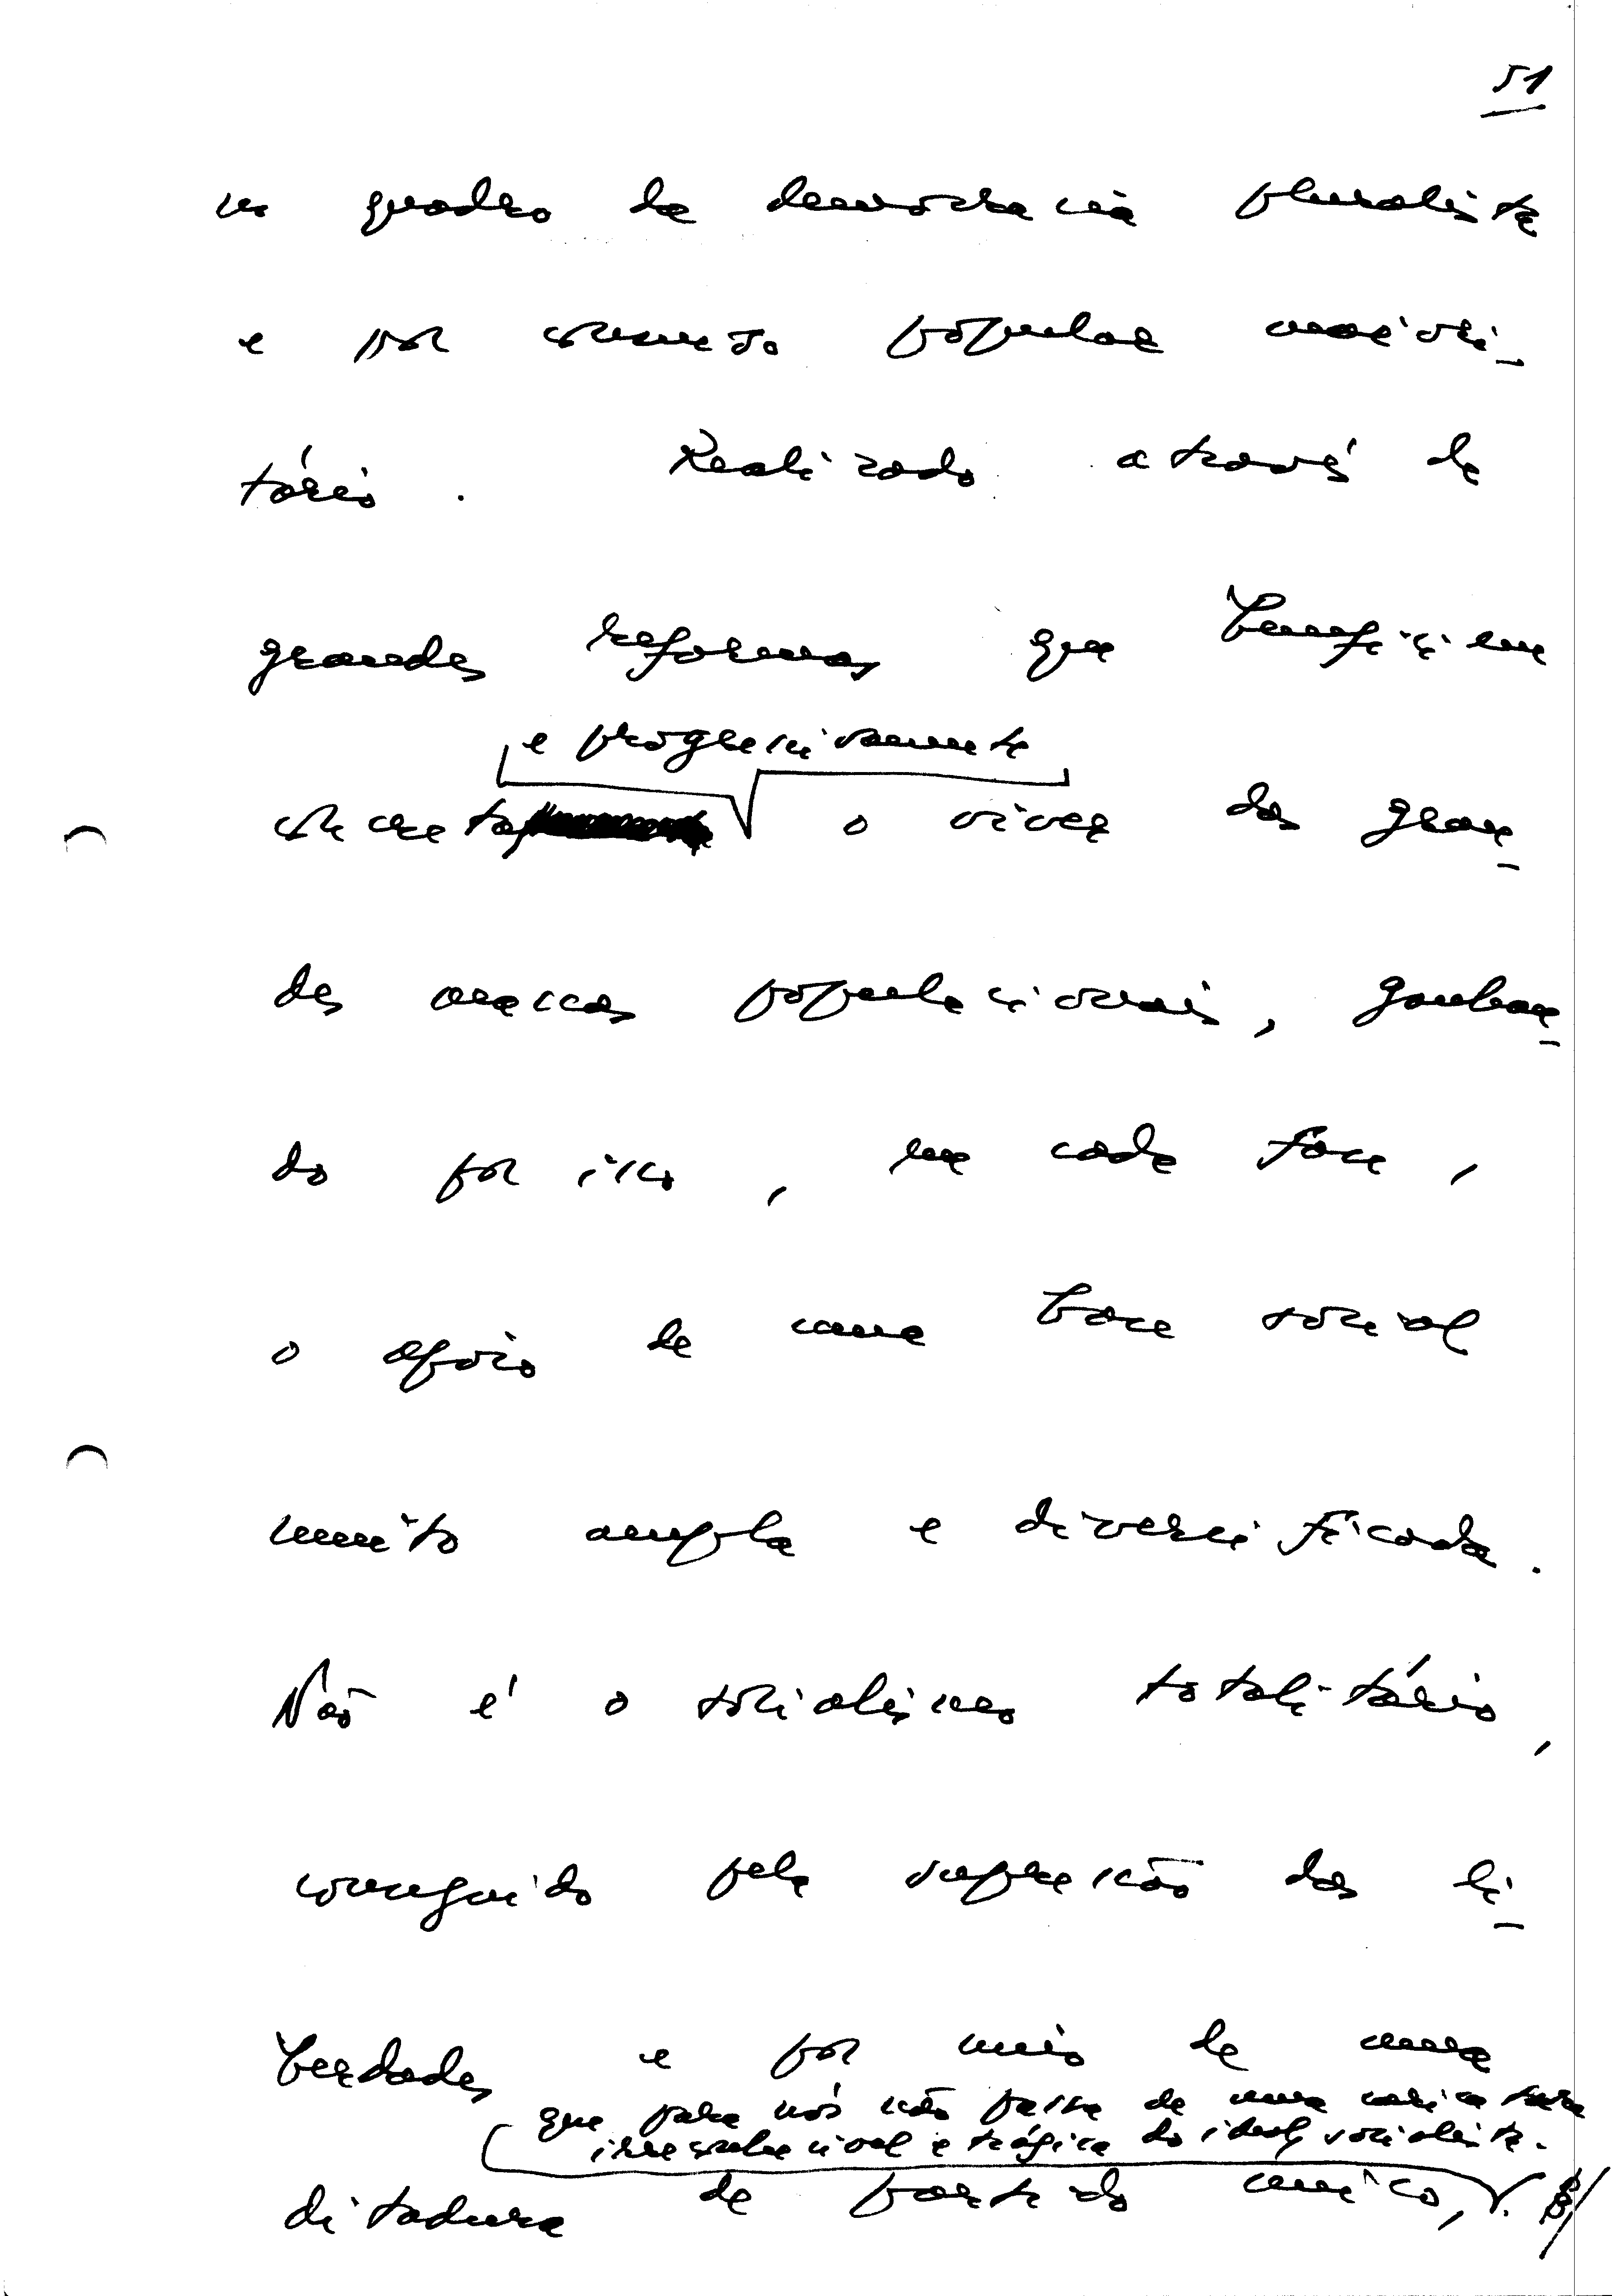 51
no quadro da democracia pluralista
e por consenso popular maiori-
tário. Realizado através de
grandes reformas que beneficiem
e progressivamente
concreta o viver das gran-
des massas populacionais, ganhan-
do por isso, em cada fase,
o apoio de uma base social
muito ampla e diversificada.
Não é o socialismo totalitário,
conseguido pela supressão das li-
berdades e por meio de uma
que para nós não passa de uma caricatura
irreconhecível e trágica do ideal socialista.
ditadura de partido único,